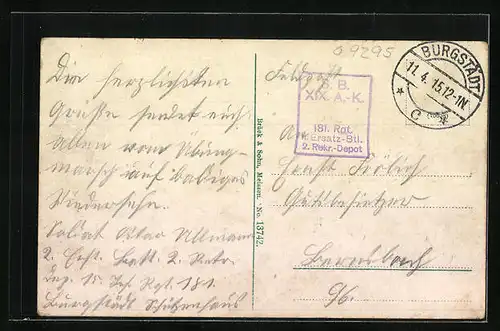 09295
BURGSTÄDT
11.4.15 12-1N.
* c *
Feldpost
S. B.
XIX. A.-K.
181. Rgt.
Ersatz-Btl.
2. Rekr.-Depot
Die herzlichsten
Grüsse sendet euch
allen vom Übung-
marsch auf baldiges
Wiedersehn.
Soldat Ullmann
2. Ers. Batt. 2. Rekr.
Dep. 15. Inf. Rgt. 181.
Burgstädt Schützenhaus
Brück & Sohn, Meissen. No. 13742.
An
Ernst Fröhlich
Gutsbesitzer
96.